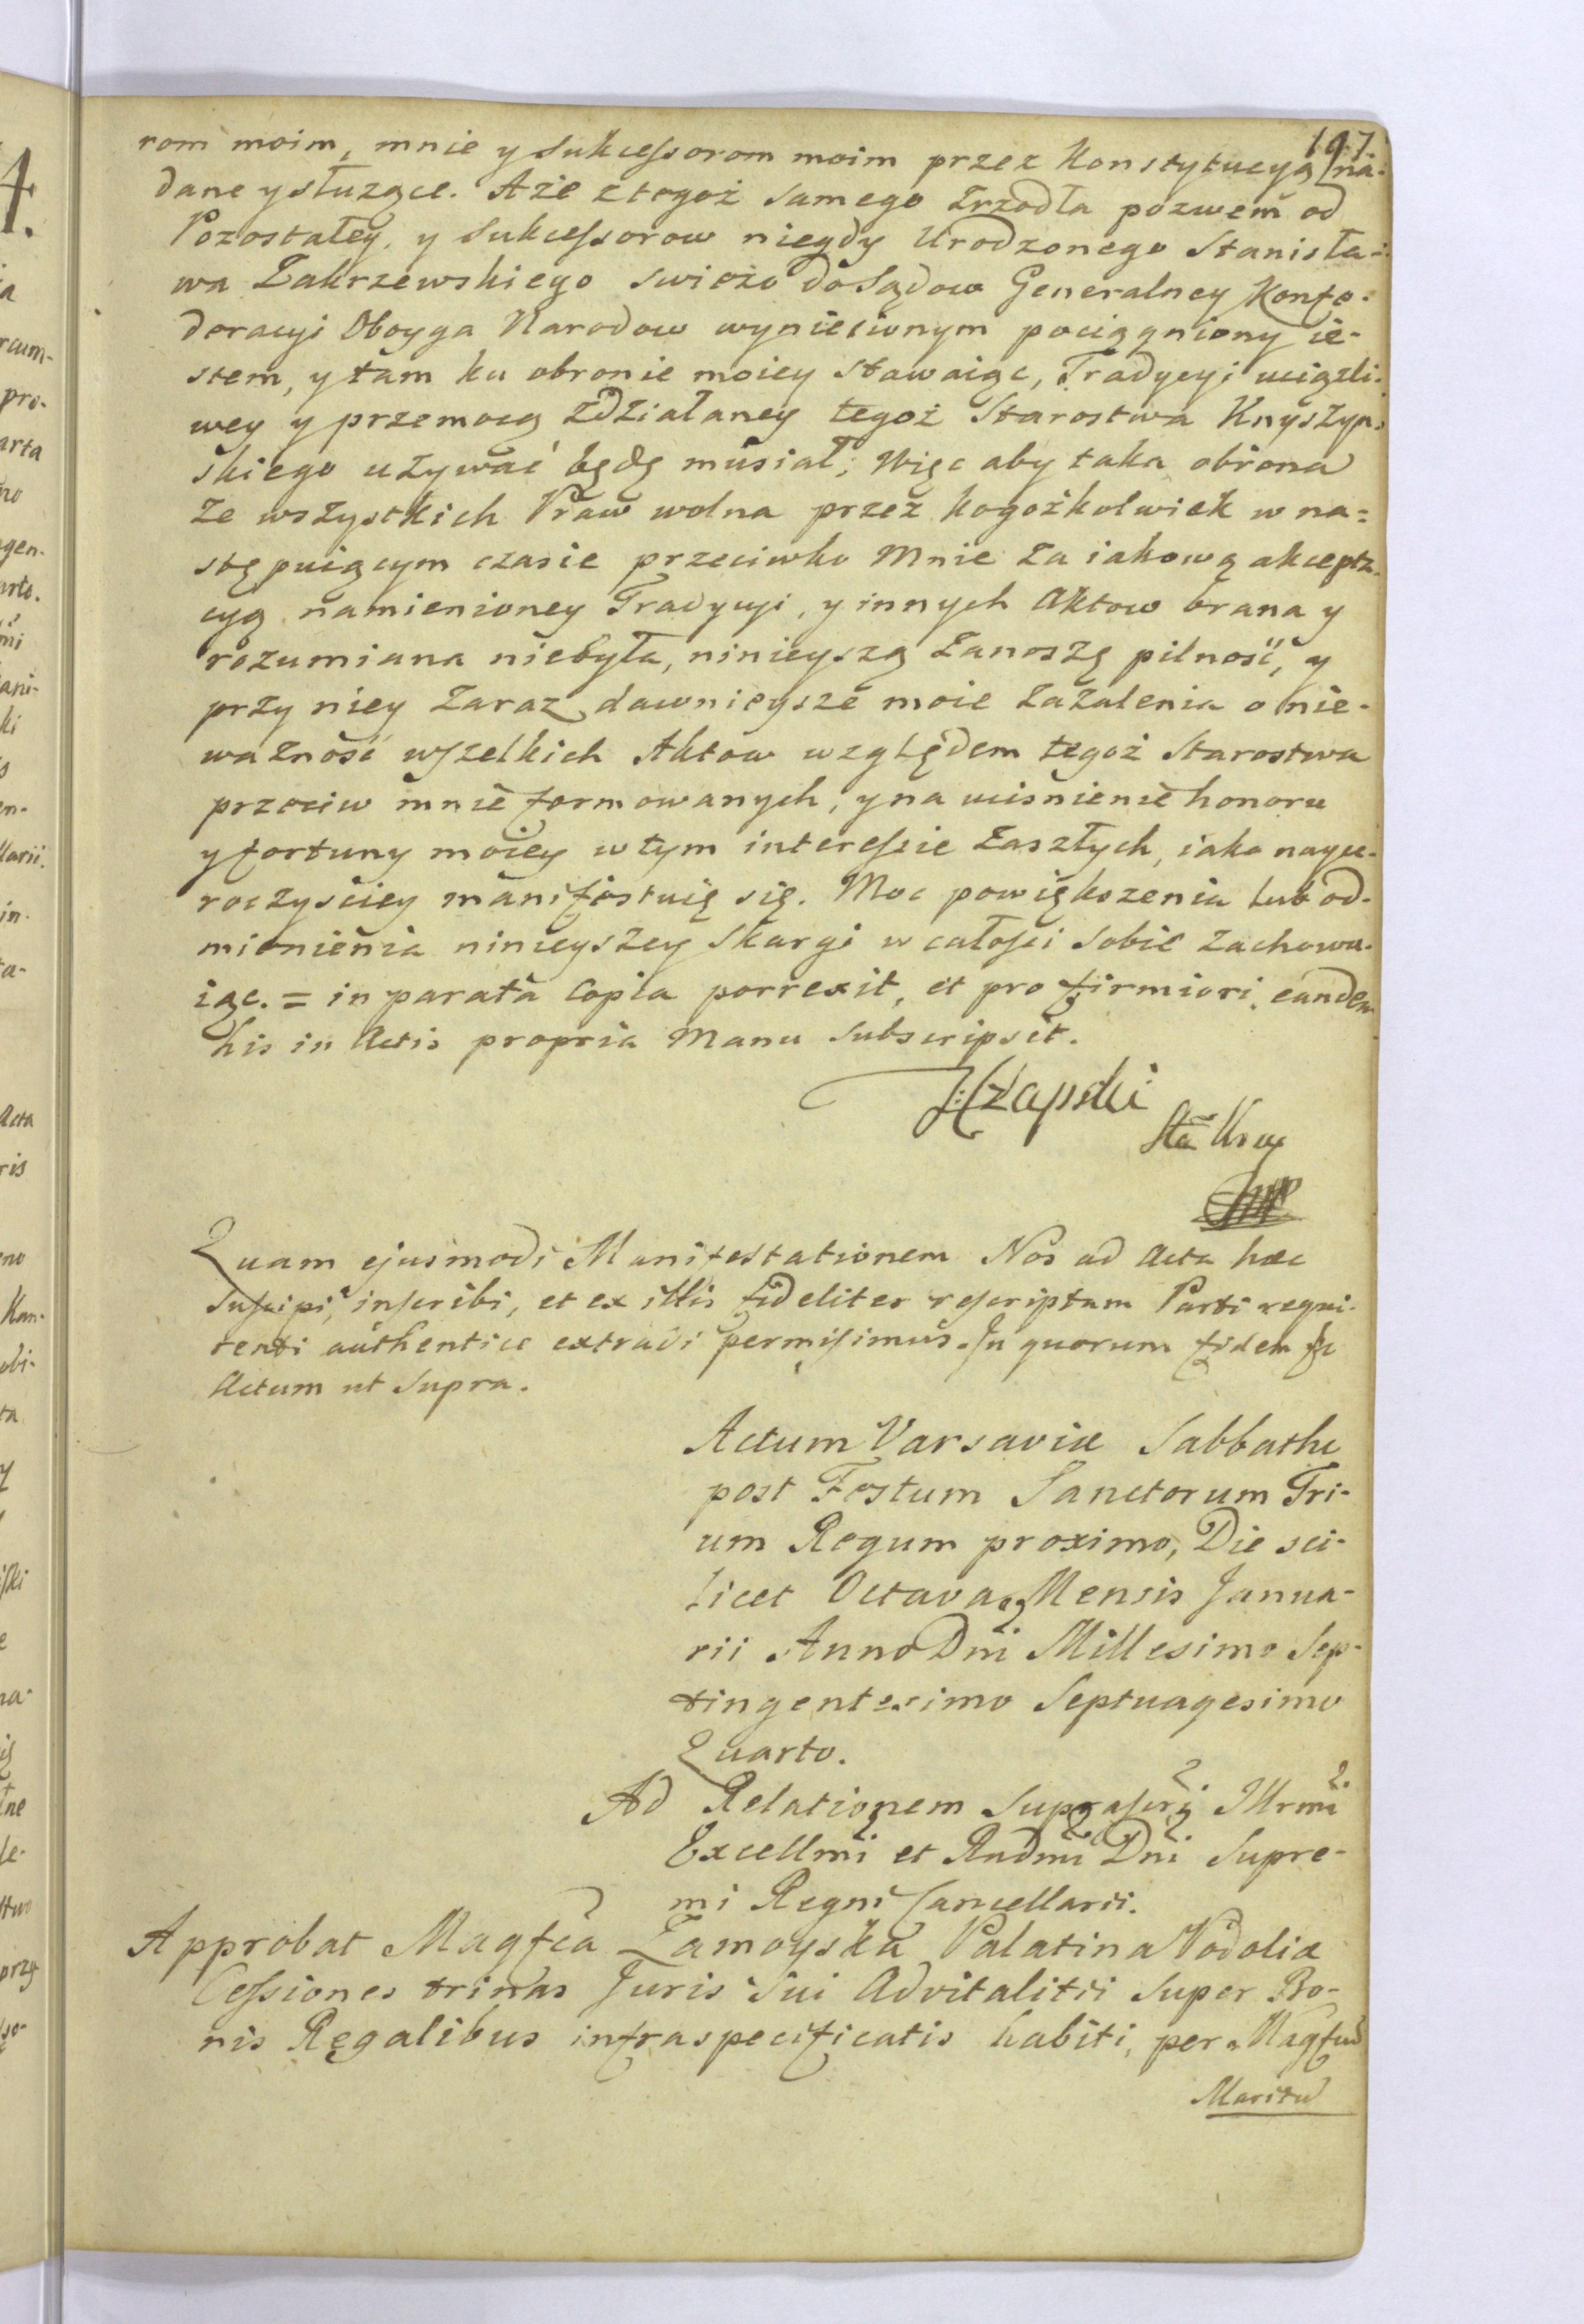 197
rom moim, mnie y Sukcessorom moim przez Konstytucyą na-
dane y służące. Aże z tegoż samego Zrzodła pozwem od
Pozostałey, y Sukcessorow niegdy Urodzonego Stanisła-
wa Zakrzewskiego swieżo do Sądow Generalney Konfe-
deracyi Oboyga Narodow wyniesionym pociągniony ie-
stem, y tam ku obronie moiey stawaiąc, Tradycyi uciążli-
wey y przemocą zdziałaney tegoż Starostwa Knyszyn-
skiego używać będę musiał; Więc aby taka obrona
ze wszystkich Praw wolna przez kogożkolwiek w na=
stępuiącym czasie przeciwko Mnie za iakową akcepta-
cyą namienioney Tradycyi, y innych Aktow brana y
rozumiana niebyła, ninieyszą zanoszę pilność, y
przy niey zaraz dawnieysze moie zażalenia o nie-
ważność wszelkich Aktow względem tegoż Starostwa
przeciw mnie formowanych, y na uciśnienie honoru
y fortuny moiey w tym interessie zaszłych, iako nayu-
roczyściey manifestuię się. Moc powiększenia lub od-
mienienia ninieyszey Skargi w całości sobie zachowu-
iąc. = in parata Copia porrexit, et pro firmiori eandem
his in Actis propria Manu Subscripsit.
Czapski
Sta Kny
Quam ejusmodi Manifestationem Nos ad Acta haec
Suscipi, inscribi, et ex illis fideliter rescriptum Parti requi-
renti authentice extradi permisimus. In quorum fidem &c
Actum ut Supra.
Actum Varsaviæ Sabbatho
post Festum Sanctorum Tri-
um Regum proximo, Die sci-
licet Octava Mensis Janua-
rii Anno Dni Millesimo Sep-
tingentesimo Septuagesimo
Quarto.
Ad Relationem Suprascri Illrmi
Excellmi et Rndmi Dni Supre-
mi Regni Cancellarii.
Approbat Magfca Zamoyska Palatina Podoliæ
Cessiones trinas Juris Sui Advitalitii super Bo-
nis Regalibus infraspecificatis habiti, per Magfum
Maritum